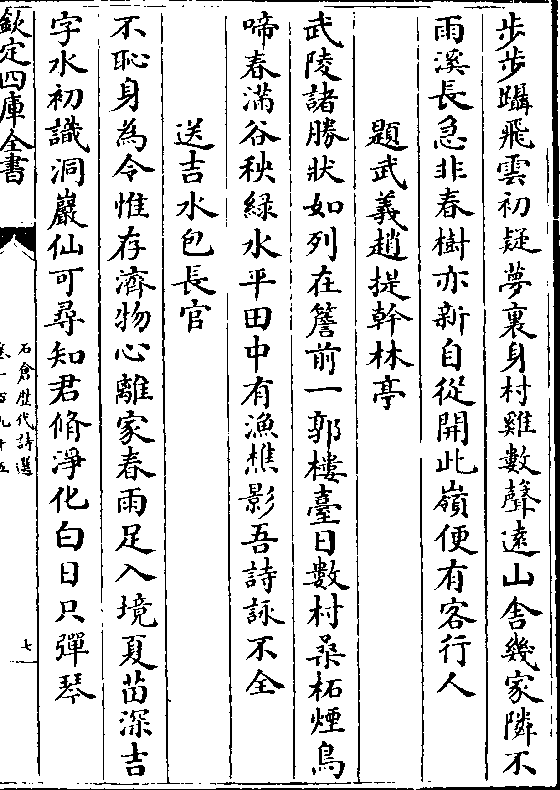 步步躡飛雲初疑夢裏身村雞數聲逺山舎幾家隣不
雨溪長急非春樹亦新自從開此嶺便有客行人
題武義趙提幹林亭
武陵諸勝狀如列在簷前一郭樓臺日數村桑柘煙鳥
啼春滿谷秧緑水平田中有漁樵影吾詩詠不全
送吉水包長官
不恥身為令惟存濟物心離家春雨足入境夏苗深吉
字水初識洞巖仙可尋知君脩淨化白日只彈琴
欽定四庫全書
石倉歴代詩選
卷一百九十五
七